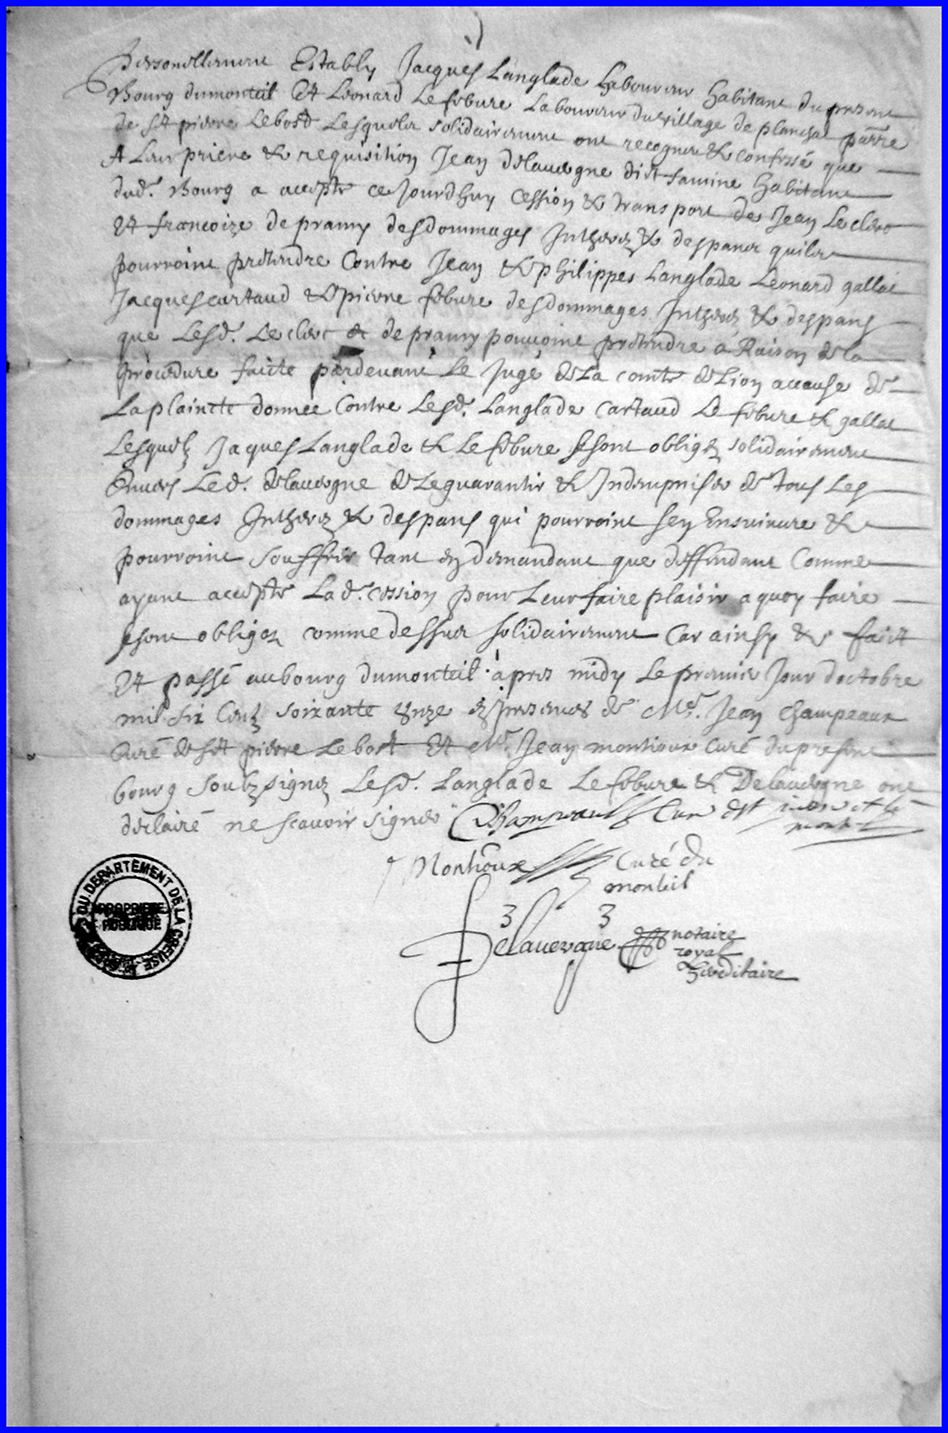 Personellement Establÿ Jacques Langlade Laboureur habitant du present
Bourg dumonteil Et Leonard Lefebure Laboureur du village de planchat parre
de St pierre Lebost Lesquels solidairement ont recogneu & confessé que
A Leur priere & requisition Jean delauvergne dict famine habitant
dud. Bourg a accepté ce Jourdhuy Cession & transport de Jean Leclerc
Et francoize de pramy desdommages Intherez & despans quilz
pourroint pretendre Contre Jean & philippes Langlade Leonard gallat
Jacques cartaud & pierre febure desdommages Intherez & despans
que Lesd. Leclerc & de pramy pouvoint pretendre a Raison de la
procedure faicte pardevant Le Juge de La comté de Lion accause de
La plaincte donnee Contre Lesd. Langlade Cartaud Le febure & gallat
Lesquelz Jaques Langlade & Le febure se sont obligez solidairement
Envers Led. delauvergne de Leguarantir & Indempniser de tous Les
dommages Intherez & despans qui pourroint sen Ensuivure &
pourroint souffrir tant en demandant que deffendant Comme
ayant accepté Lad. cession pour Leur faire plaisir a quoy faire
se sont obligez comme dessus solidairement Car ainsy & faict
Et passé aubourg dumonteil apres midy Le premier Jour doctobre
mil six Cens soixante unze en presences de Me. Jean Champeaux
Curé de St pierre Le bost Et Me. Jean montioux Curé du present
bourg soubzsignez Lesd. Langlade Lefebure & Delauvergne ont
declairé ne scavoir signer Champeaux Curé de St pierre
Monthioux Curé du
monteil
Delauvergne notaire
royal
hereditaire
DU DÉPARTEMENT DE LA CREUSE
PROPRIÉTÉ
PUBLIQUE